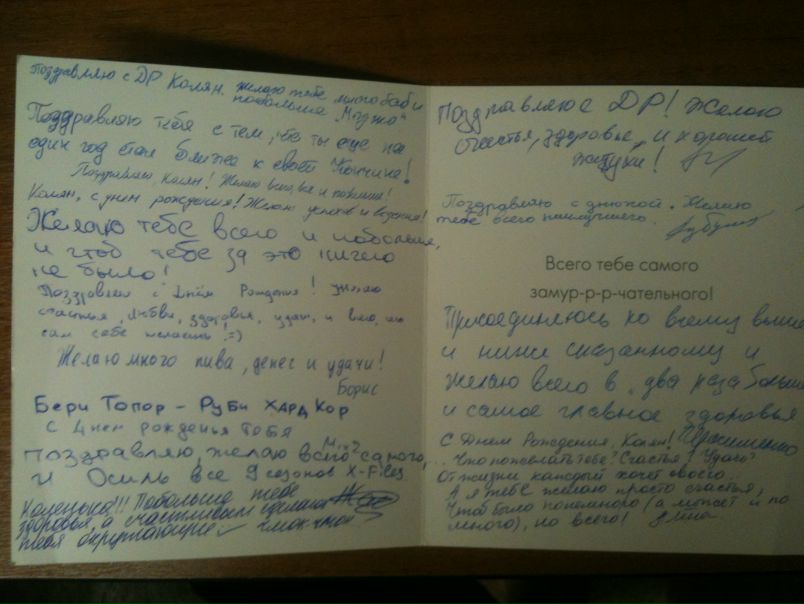 Поздравляю с ДР Колян. желаю тебе много баб и
побольше "Моджо"
Поздравляю тебя с тем, что ты еще на
один год стал ближе к своей кончине!
Поздравляю, Колян! Желаю всего, все и побольше!
Колян, с днем рождения! Желаю успехов и везения!
Желаю тебе всего и побольше,
и чтоб тебе за это ничего
не было!
Поздравляю с Днём Рождения! Желаю
счастья, любви, здоровья, удачи, и всего, что
сам себе желаешь! =)
Желаю много пива, денег и удачи!
Борис
Бери Топор - Руби Хард Кор
С Днем рожденья тебя
поздравляю, желаю всего самого,...
и Осиль все 9 сезонов X-Files
Коленька!!! Побольше тебе
здоровья, а счастливым сделают
тебя окружающие чмок чмок
Поздравляю с ДР! Желаю
счастья, здоровья, и хорошей
Поздравляю с днюхой. Желаю
тебе всего наилучшего.
Всего тебе самого
замур-р-р-чательного!
Присоединяюсь ко всему выше
и ниже сказанному и
желаю всего в два раза больше
и самое главное здоровья
С Днем Рождения, Колян!
Что пожелать тебе? Счастья? Удачи?
От жизни каждый хочет своего.
А я тебе желаю просто счастья,
Чтоб было понемногу (а может и по
многу), но всего! Алина.